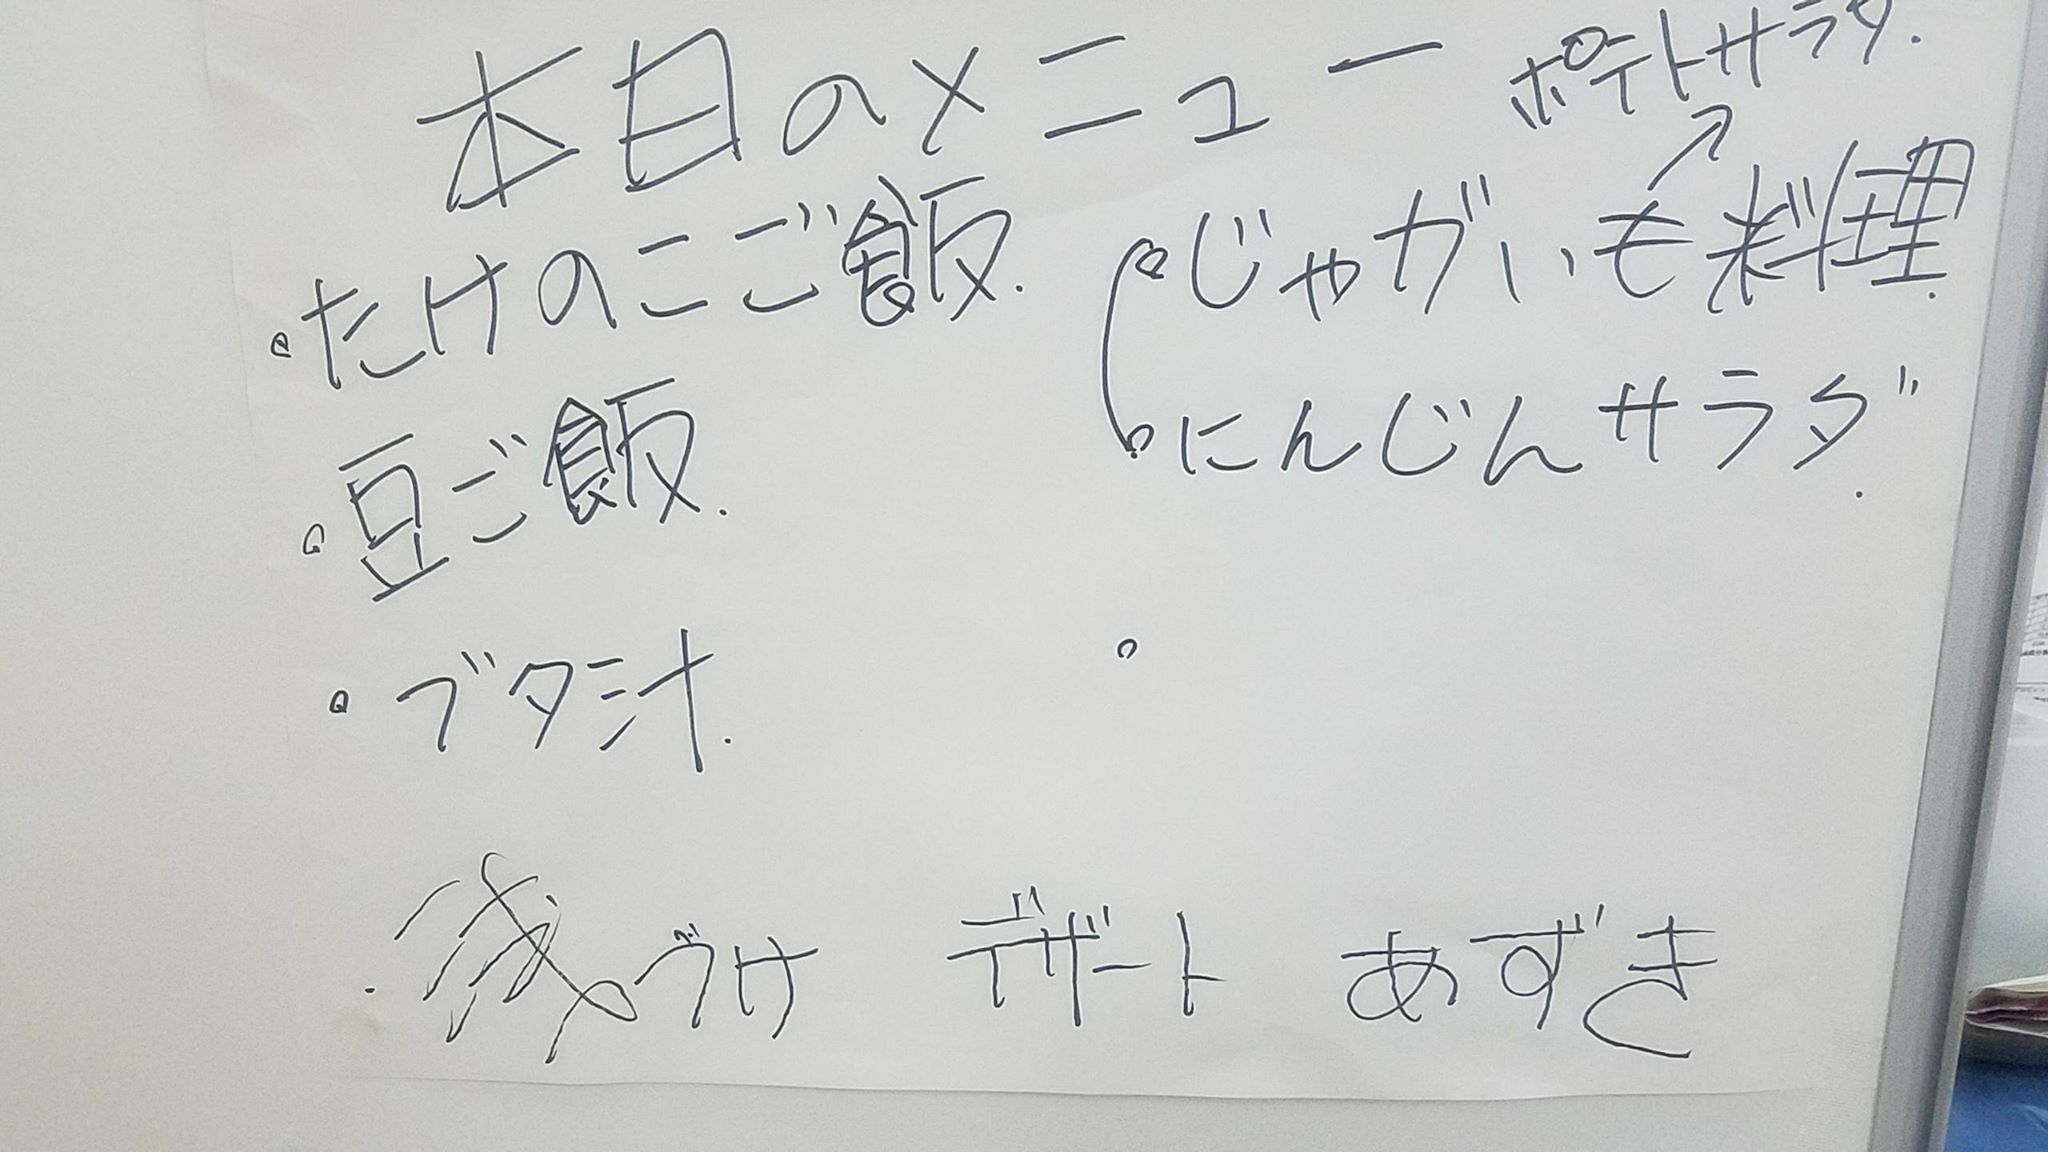 本日のメニュー
ポテトサラダ.
・たけのこご飯.
・じゃがいも料理.
・豆ご飯.
・にんじんサラダ.
・ブタ汁.
・浅づけ デザート あずき